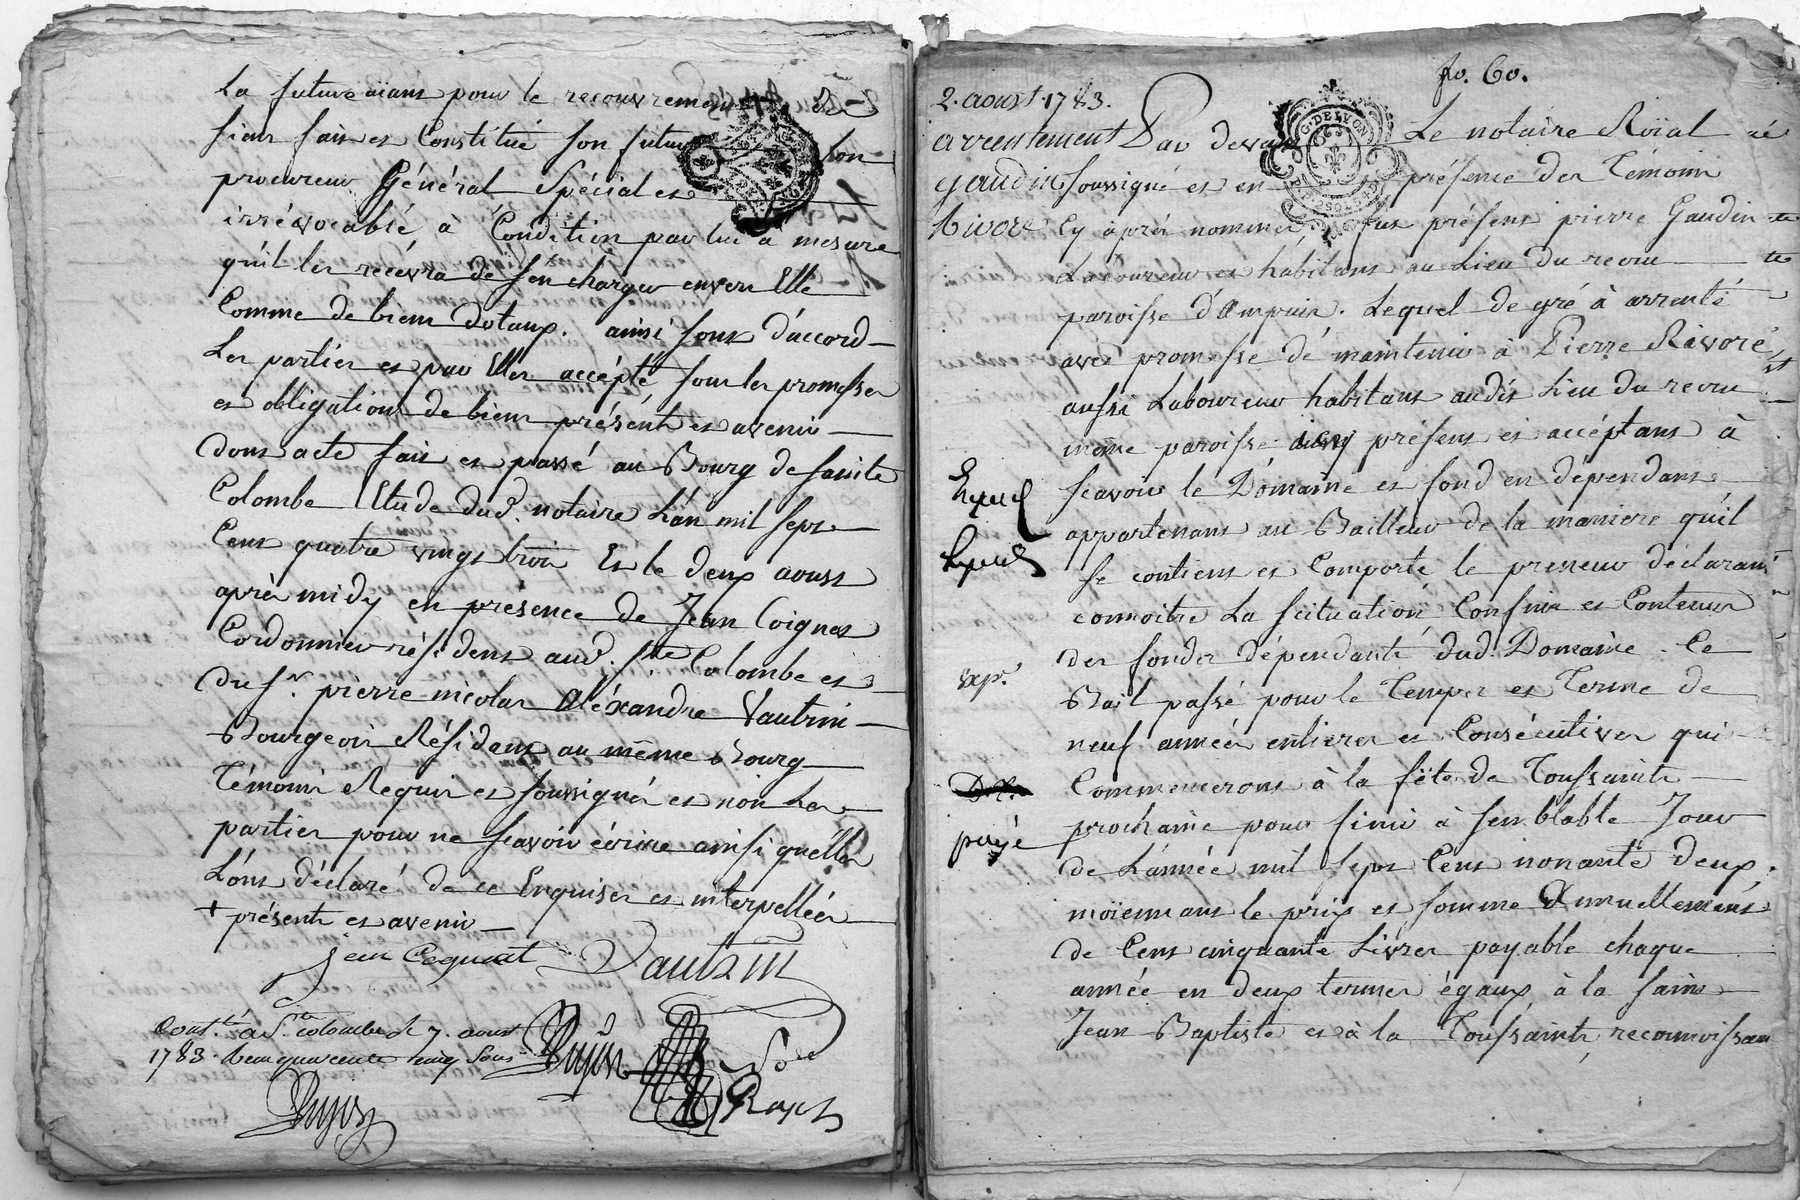 La future aiant pour le recouvrement de
sien fait et Constitué son futur son
procureur Général Spécial et
irrévocable à Condition par lui a mesure
qu'il les recevra de s'en charger envers Elle
Comme de biens dotaux. ainsi sont d'accord
Les parties et par Elles accépté sous les promesses
et obligations de biens présents et avenir
dont acte fait et passé au Bourg de sainte
Colombe Etude dud. notaire L'an mil sept
Cent quatre vingt trois Et le deux aoust
après midy en présence de Jean Coignet
Cordonnier résident aud. Ste Colombe et
du sr. pierre nicolas Aléxandre Vautrin
Bourgeois Résidant au même Bourg
Témoins Requis et soussignés et non Les
parties pour ne scavoir écrire ainsi quélles
L'ont déclaré de ce Enquises et interpellées
+ présents et avenir
jean Cognat Vautrin
Cont.lé a Ste colombe le 7. aoust
1783.
Dujon
fo. 60.
2. aoust 1783.
arrentement
gaudin
Rivore
Par devant Le notaire Roïal
soussigné et en présence des Témoins
Cy après nommés, fut présent pierre Gaudin
Laboureur et habitant au Lieu du recru
paroisse d'Ampuis. Lequel de gré à arrenté
avec promesse de maintenir à Pierre Rivoré
aussi Laboureur habitant audit Lieu du recru
même paroisse icy présent et accéptant à
scavoir le Domaine et fond en dépendant
appartenant au Bailleur de la maniere qu'il
se contient et Comporte le preneur déclarant
connoitre La scituation Confins et Contenus
des fonds dépendants dud. Domaine. Ce
Bail passé pour le Temps et Terme de
neuf années entieres et Consécutives qui
Commenceront à la fête de Toussaints
prochaine pour finir à semblable Jour
de L'année mil sept Cent nonante deux.
moiennant le prix et somme Annuellement
de Cent cinquante Livres payable chaque
année en deux termes égaux, à la saint
Jean Baptiste et à la Toussaints, reconnoissant
exp.
payé